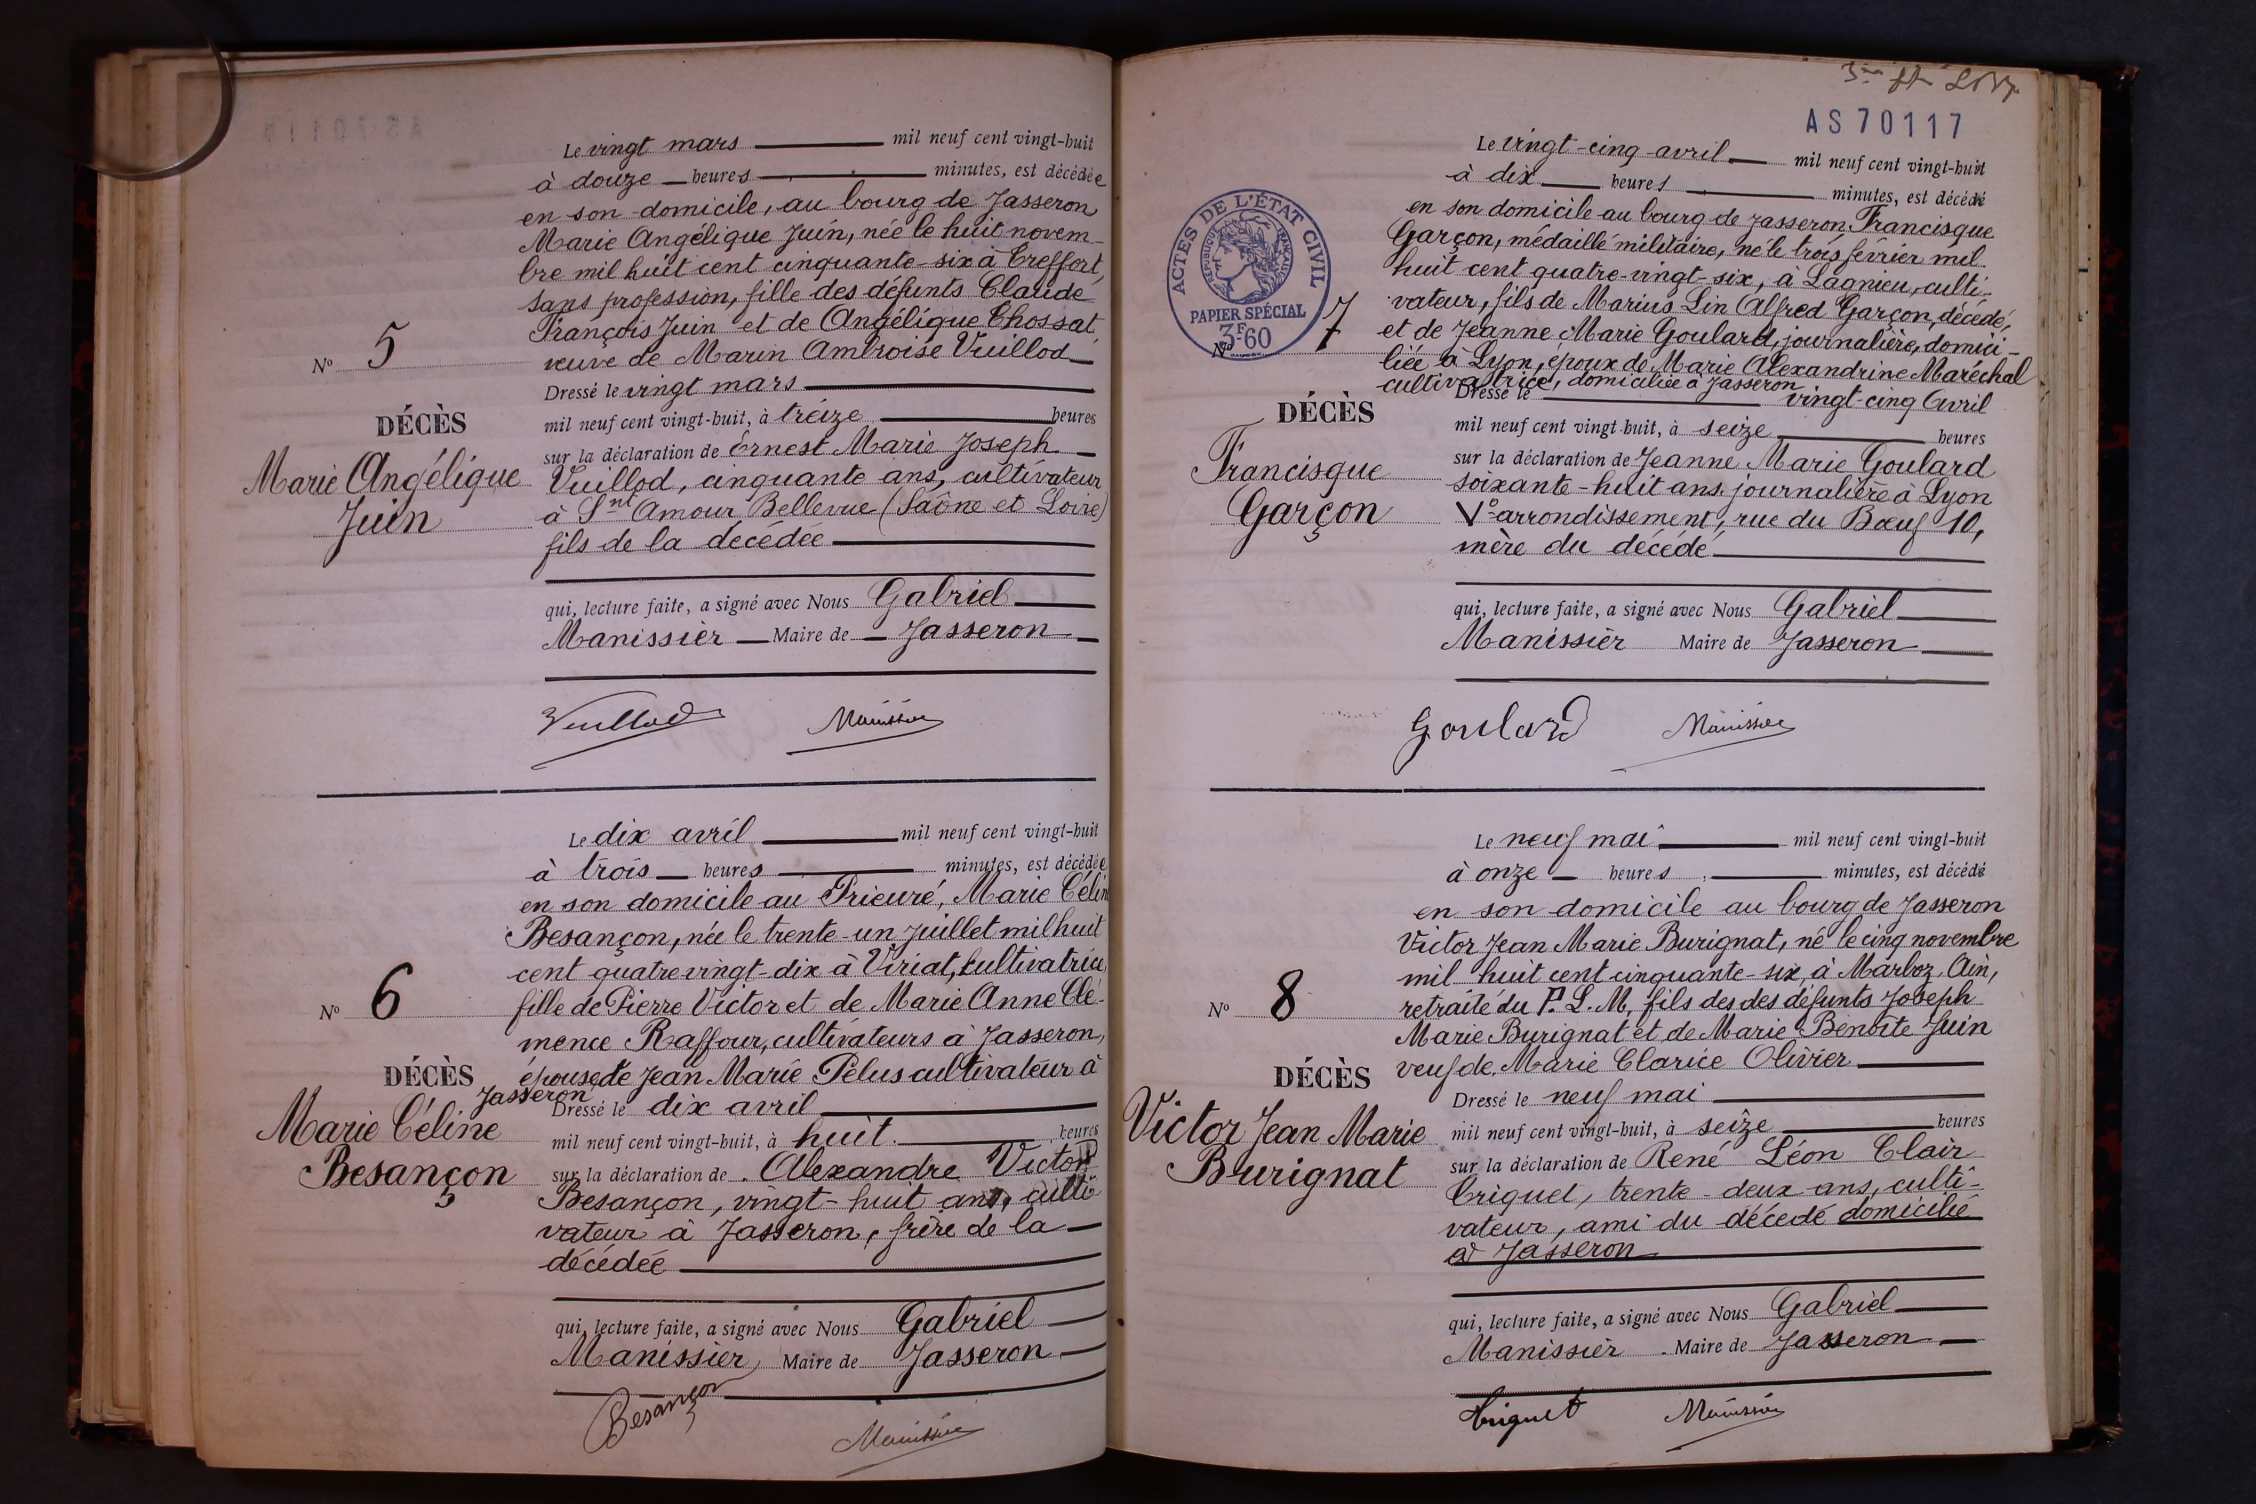 Le vingt mars mil neuf cent vingt-huit
à douze heures minutes, est décédée
en son domicile, au bourg de Jasseron
Marie Angélique Juin, née le huit novem-
bre mil huit cent cinquante-six à Treffort,
sans profession, fille des défunts Claude
François Juin et de Angélique Chossat,
veuve de Marin Ambroise Vuillod
Nº 5
Dressé le vingt mars
DÉCÈS
mil neuf cent vingt-huit, à treize heures
sur la déclaration de Ernest Marie Joseph
Marie Angélique
Juin
Vuillod, cinquante ans, cultivateur
à Snt Amour Bellevue (Saône et Loire)
fils de la décédée
qui, lecture faite, a signé avec Nous Gabriel
Manissier Maire de Jasseron
Vuillod Manissier
Le dix avril mil neuf cent vingt-huit
à trois heures minutes, est décédée
en son domicile au Prieuré, Marie Célin
Besançon, née le trente-un juillet mil huit
cent quatre vingt-dix à Viriat, cultivatrice
fille de Pierre Victor et de Marie Anne Clé-
Nº 6
mence Raffour, cultivateurs à Jasseron,
épouse de Jean Marie Pélus cultivateur à
Jasseron
DÉCÈS
Dressé le dix avril
Marie Céline
Besançon
mil neuf cent vingt-huit, à huit heures
sur la déclaration de Alexandre Victor
Besançon, vingt-huit ans, culti-
vateur à Jasseron, frère de la
décédée
qui, lecture faite, a signé avec Nous Gabriel
Manissier, Maire de Jasseron
Besançon
Manissier
AS 70117
Le vingt-cinq avril mil neuf cent vingt-huit
à dix heures minutes, est décédé
en son domicile au bourg de Jasseron, Francisque
Garçon, médaillé militaire, né le trois février mil
huit cent quatre-vingt-six, à Lagnieu, culti-
vateur, fils de Marius Lin Alfred Garçon, décédé,
et de Jeanne Marie Goulard, journalière, domici-
liée à Lyon, époux de Marie Alexandrine Maréchal
cultivatrice, domiciliée à Jasseron
ACTES DE L'ÉTAT CIVIL
RÉPUBLIQUE FRANÇAISE
PAPIER SPÉCIAL
3F60
Nº 7
DÉCÈS
Dressé le vingt-cinq Avril
mil neuf cent vingt-huit, à seize heures
Francisque
Garçon
sur la déclaration de Jeanne Marie Goulard
soixante-huit ans, journalière à Lyon
Vº arrondissement, rue du Bœuf 10,
mère du décédé
qui, lecture faite, a signé avec Nous Gabriel
Manissier Maire de Jasseron
Goulard Manissier
Le neuf mai mil neuf cent vingt-huit
à onze heures minutes, est décédé
en son domicile au bourg de Jasseron
Victor Jean Marie Burignat, né le cinq novembre
mil huit cent cinquante-six, à Marboz, Ain,
retraité du P. L. M, fils des des défunts Joseph
Nº 8
Marie Burignat et de Marie Benoîte Juin
veuf de Marie Clarice Olivier
DÉCÈS
Dressé le neuf mai
Victor Jean Marie
Burignat
mil neuf cent vingt-huit, à seize heures
sur la déclaration de René Léon Clair
Criquet, trente-deux ans, culti-
vateur, ami du décédé domicilié
à Jasseron
qui, lecture faite, a signé avec Nous Gabriel
Manissier Maire de Jasseron
Criquet Manissier